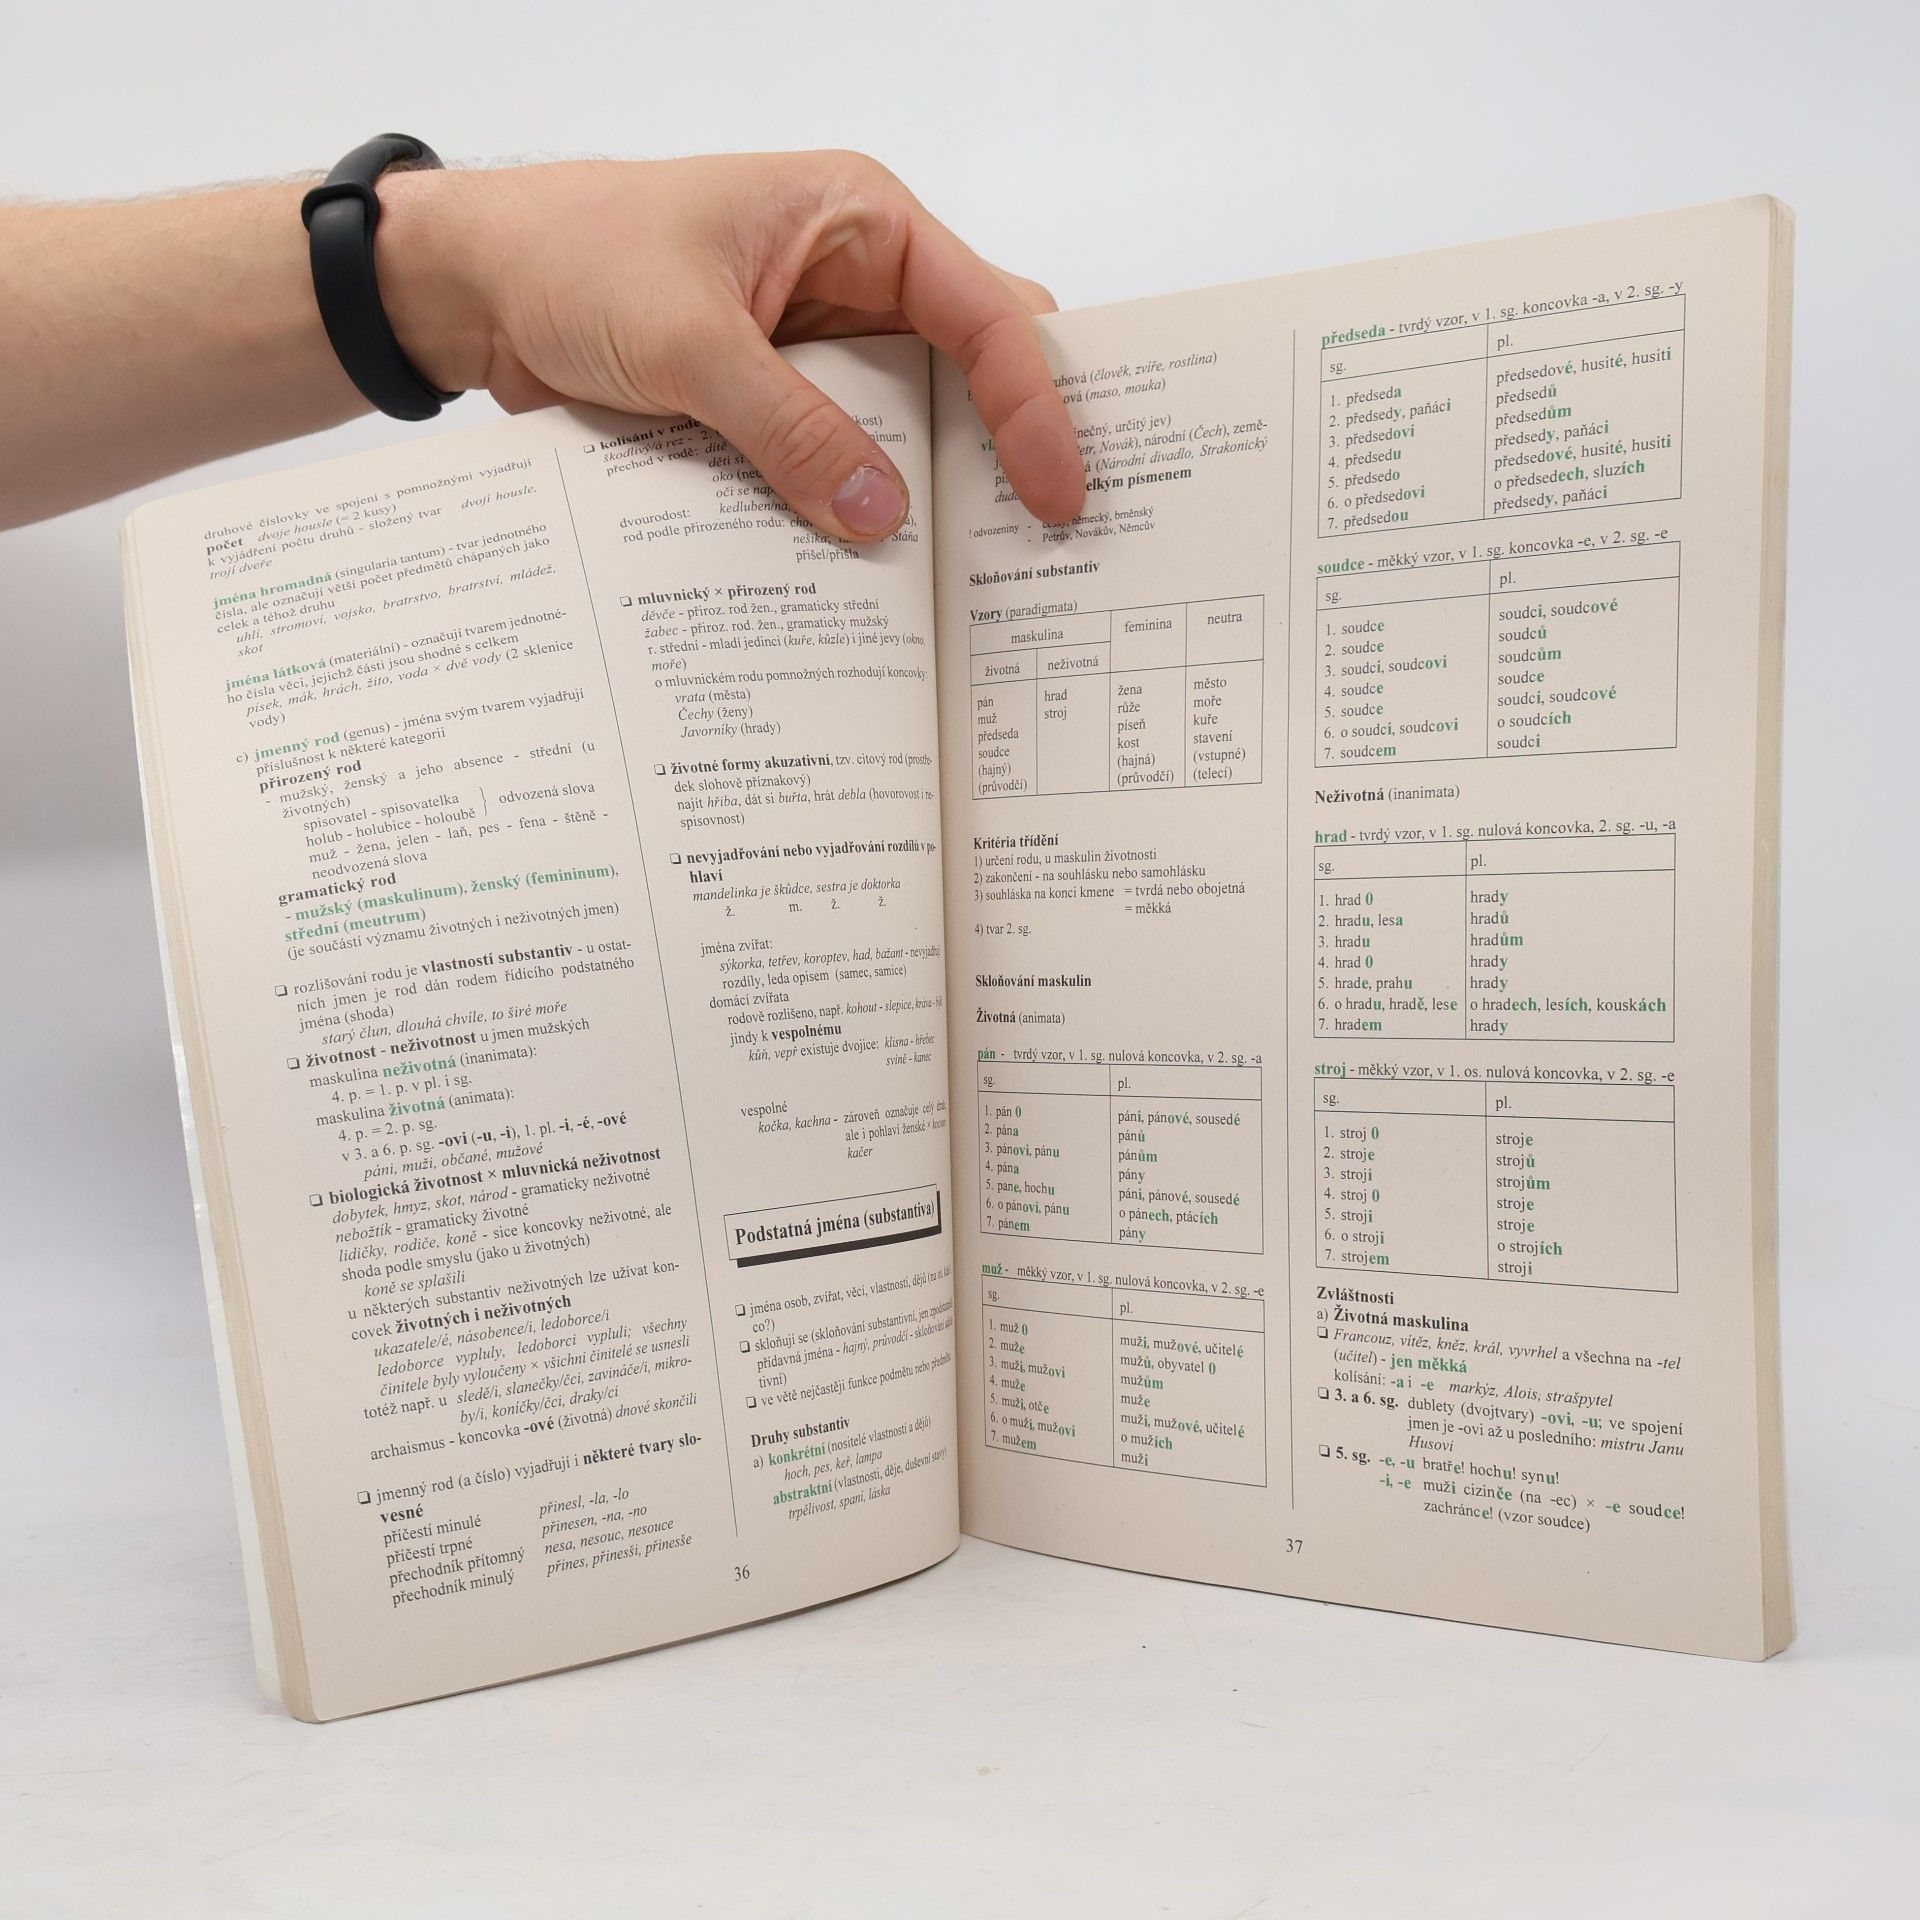 druhové číslovky ve spojení s pomnožnými vyjadřují
počet dvoje housle (= 2 kusy)
k vyjádření počtu druhů - složený tvar dvojí housle,
trojí dveře
jména hromadná (singularia tantum) - tvar jednotného
čísla, ale označují větší počet předmětů chápaných jako
celek a téhož druhu
uhlí, stromoví, vojsko, bratrstvo, bratrství, mládež,
skot
jména látková (materiální) - označují tvarem jednotné-
ho čísla věci, jejichž části jsou shodné s celkem
písek, mák, hrách, žito, voda × dvě vody (2 sklenice
vody)
c) jmenný rod (genus) - jména svým tvarem vyjadřují
příslušnost k některé kategorii
přirozený rod
- mužský, ženský a jeho absence - střední (u
životných)
spisovatel - spisovatelka
holub - holubice - holoubě } odvozená slova
muž - žena, jelen - laň, pes - fena - štěně -
neodvozená slova
gramatický rod
- mužský (maskulinum), ženský (femininum),
střední (meutrum)
(je součástí významu životných i neživotných jmen)
❑ rozlišování rodu je vlastností substantiv - u ostat-
ních jmen je rod dán rodem řídícího podstatného
jména (shoda)
starý člun, dlouhá chvíle, to širé moře
❑ životnost - neživotnost u jmen mužských
maskulina neživotná (inanimata):
4. p. = 1. p. v pl. i sg.
maskulina životná (animata):
4. p. = 2. p. sg.
v 3. a 6. p. sg. -ovi (-u, -i), 1. pl. -i, -é, -ové
páni, muži, občané, mužové
❑ biologická životnost × mluvnická neživotnost
dobytek, hmyz, skot, národ - gramaticky neživotné
nebožtík - gramaticky životné
lidičky, rodiče, koně - sice koncovky neživotné, ale
shoda podle smyslu (jako u životných)
koně se splašili
u některých substantiv neživotných lze užívat kon-
covek životných i neživotných
ukazatele/é, násobence/i, ledoborce/i
ledoborce vypluly, ledoborci vypluli; všechny
činitele byly vyloučeny × všichni činitelé se usnesli
totéž např. u sledě/i, slanečky/čci, zavináče/i, mikro-
by/i, koníčky/čci, draky/ci
archaismus - koncovka -ové (životná) dnové skončili
❑ jmenný rod (a číslo) vyjadřují i některé tvary slo-
vesné
příčestí minulé přinesl, -la, -lo
příčestí trpné přinesen, -na, -no
přechodník přítomný nesa, nesouc, nesouce
přechodník minulý přines, přinesši, přinesše
❑ kolísání v rodě
škodlivý/á rez - 2.
přechod v rodě: dítě
děti si
oko
oči se
dvourodost: kedluben/na,
rod podle přirozeného rodu:
nešika, Stáňa
přišel/přišla
❑ mluvnický × přirozený rod
děvče - přiroz. rod žen., gramaticky střední
žabec - přiroz. rod. žen., gramaticky mužský
r. střední - mladí jedinci (kuře, kůzle) i jiné jevy (okno,
moře)
o mluvnickém rodu pomnožných rozhodují koncovky:
vrata (města)
Čechy (ženy)
Javorníky (hrady)
❑ životné formy akuzativní, tzv. citový rod (prostře-
dek slohově příznakový)
najít hřiba, dát si buřta, hrát debla (hovorovost i ne-
spisovnost)
❑ nevyjadřování nebo vyjadřování rozdílů v po-
hlaví
mandelinka je škůdce, sestra je doktorka
ž. m. ž. ž.
jména zvířat:
sýkorka, tetřev, koroptev, had, bažant - nevyjadřují
rozdíly, leda opisem (samec, samice)
domácí zvířata
rodově rozlišeno, např. kohout - slepice, kráva - býk
jindy k vespolnému
kůň, vepř existuje dvojice: klisna - hřebec
svině - kanec
vespolné
kočka, kachna - zároveň označuje celý druh,
ale i pohlaví ženské × kocour,
kačer
Podstatná jména (substantiva)
❑ jména osob, zvířat, věcí, vlastností, dějů
co?)
❑ skloňují se (skloňování substantivní, jen zpodstatnělá
přídavná jména - hajný, průvodčí - skloňování
tivní)
❑ ve větě nejčastěji funkce podmětu nebo předmětu
Druhy substantiv
a) konkrétní (nositelé vlastností a dějů)
hoch, pes, keř, lampa
abstraktní (vlastnosti, děje, duševní stavy)
trpělivost, spaní, láska
36
(člověk, zvíře, rostlina)
(maso, mouka)
určitý jev)
Novák), národní (Čech), země-
(Národní divadlo, Strakonický
písmenem
! odvozeniny - německý, brněnský
- Petrův, Novákův, Němcův
Skloňování substantiv
Vzory (paradigmata)
maskulina feminina neutra
životná neživotná
pán hrad žena město
muž stroj růže moře
předseda píseň kuře
soudce kost stavení
(hajný) (hajná) (vstupné)
(průvodčí) (průvodčí) (telecí)
Kritéria třídění
1) určení rodu, u maskulin životnosti
2) zakončení - na souhlásku nebo samohlásku
3) souhláska na konci kmene = tvrdá nebo obojetná
= měkká
4) tvar 2. sg.
Skloňování maskulin
Životná (animata)
pán - tvrdý vzor, v 1. sg. nulová koncovka, v 2. sg. -a
sg. pl.
1. pán 0 páni, pánové, sousedé
2. pána pánů
3. pánovi, pánu pánům
4. pána pány
5. pane, hochu páni, pánové, sousedé
6. o pánovi, pánu o pánech, ptácích
7. pánem pány
muž - měkký vzor, v 1. sg. nulová koncovka, v 2. sg. -e
sg. pl.
1. muž 0 muži, mužové, učitelé
2. muže mužů, obyvatel 0
3. muži, mužovi mužům
4. muže muže
5. muži, otče muži, mužové, učitelé
6. o muži, mužovi o mužích
7. mužem muži
předseda - tvrdý vzor, v 1. sg. koncovka -a, v 2. sg. -y
sg. pl.
1. předseda předsedové, husité, husiti
2. předsedy, paňáci předsedů
3. předsedovi předsedům
4. předsedu předsedy, paňáci
5. předsedo předsedové, husité, husiti
6. o předsedovi o předsedech, sluzích
7. předsedou předsedy, paňáci
soudce - měkký vzor, v 1. sg. koncovka -e, v 2. sg. -e
sg. pl.
1. soudce soudci, soudcové
2. soudce soudců
3. soudci, soudcovi soudcům
4. soudce soudce
5. soudce soudci, soudcové
6. o soudci, soudcovi o soudcích
7. soudcem soudci
Neživotná (inanimata)
hrad - tvrdý vzor, v 1. sg. nulová koncovka, 2. sg. -u, -a
sg. pl.
1. hrad 0 hrady
2. hradu, lesa hradů
3. hradu hradům
4. hrad 0 hrady
5. hrade, prahu hrady
6. o hradu, hradě, lese o hradech, lesích, kouskách
7. hradem hrady
stroj - měkký vzor, v 1. os. nulová koncovka, v 2. sg. -e
sg. pl.
1. stroj 0 stroje
2. stroje strojů
3. stroji strojům
4. stroj 0 stroje
5. stroji stroje
6. o stroji o strojích
7. strojem stroji
Zvláštnosti
a) Životná maskulina
❑ Francouz, vítěz, kněz, král, vyvrhel a všechna na -tel
(učitel) - jen měkká
kolísání: -a i -e markýz, Alois, strašpytel
❑ 3. a 6. sg. dublety (dvojtvary) -ovi, -u; ve spojení
jmen je -ovi až u posledního: mistru Janu
Husovi
❑ 5. sg. -e, -u bratře! hochu! synu!
-i, -e muži cizinče (na -ec) × -e soudce!
zachránce! (vzor soudce)
37